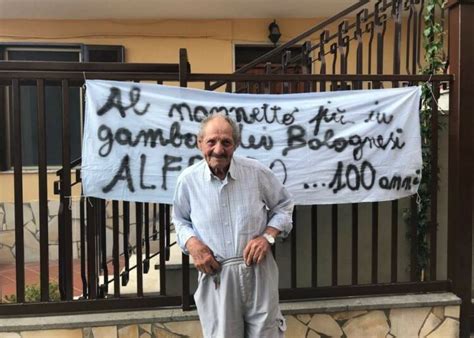 Al nonnetto più in
gamba dei Bolognesi
...100 anni